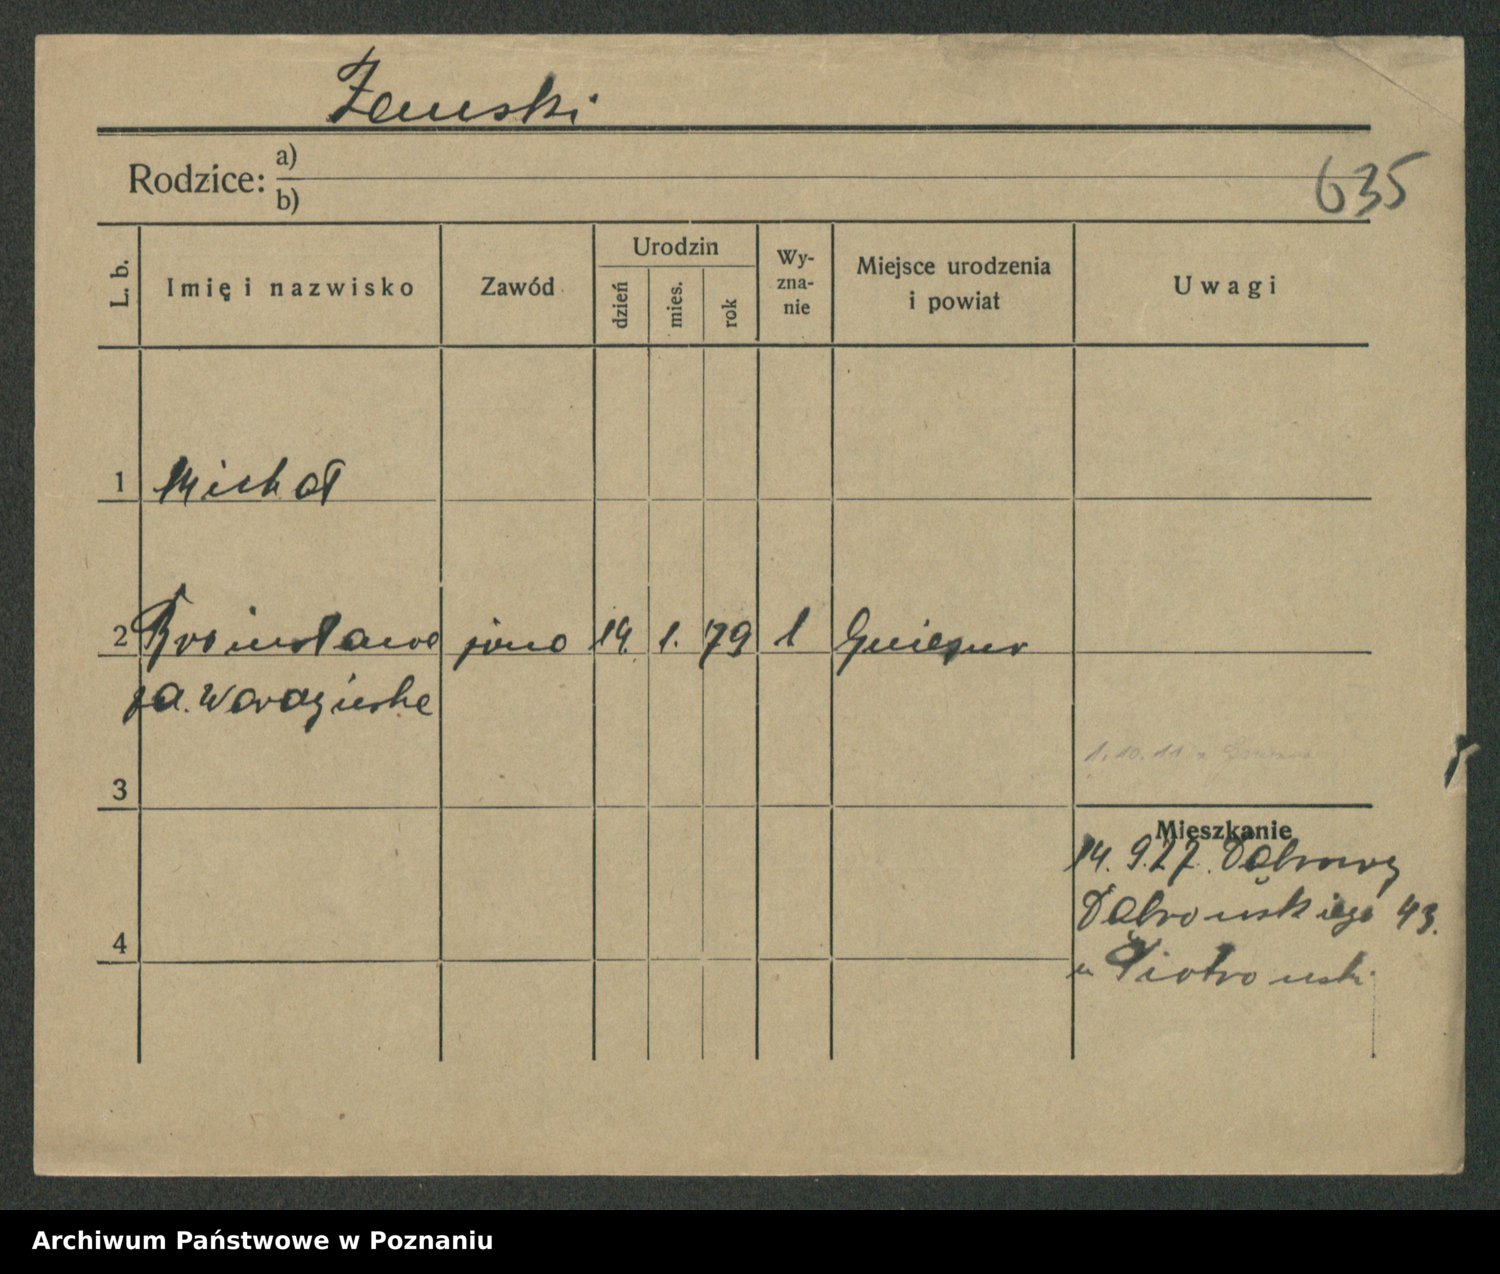 Żemski
Rodzice: a)
b)
635
L. b.
Imię i nazwisko
Zawód
Urodzin
dzień
mies.
rok
Wy-
zna-
nie
Miejsce urodzenia
i powiat
Uwagi
1 Michał
2 Bronisława żona 14. 1. 79 1 Gniezno
3
1.10.11 z
Mieszkanie
14. 9.27. Dąbrowy
Dąbrowskiego 43.
u Piotrowski
4
Archiwum Państwowe w Poznaniu